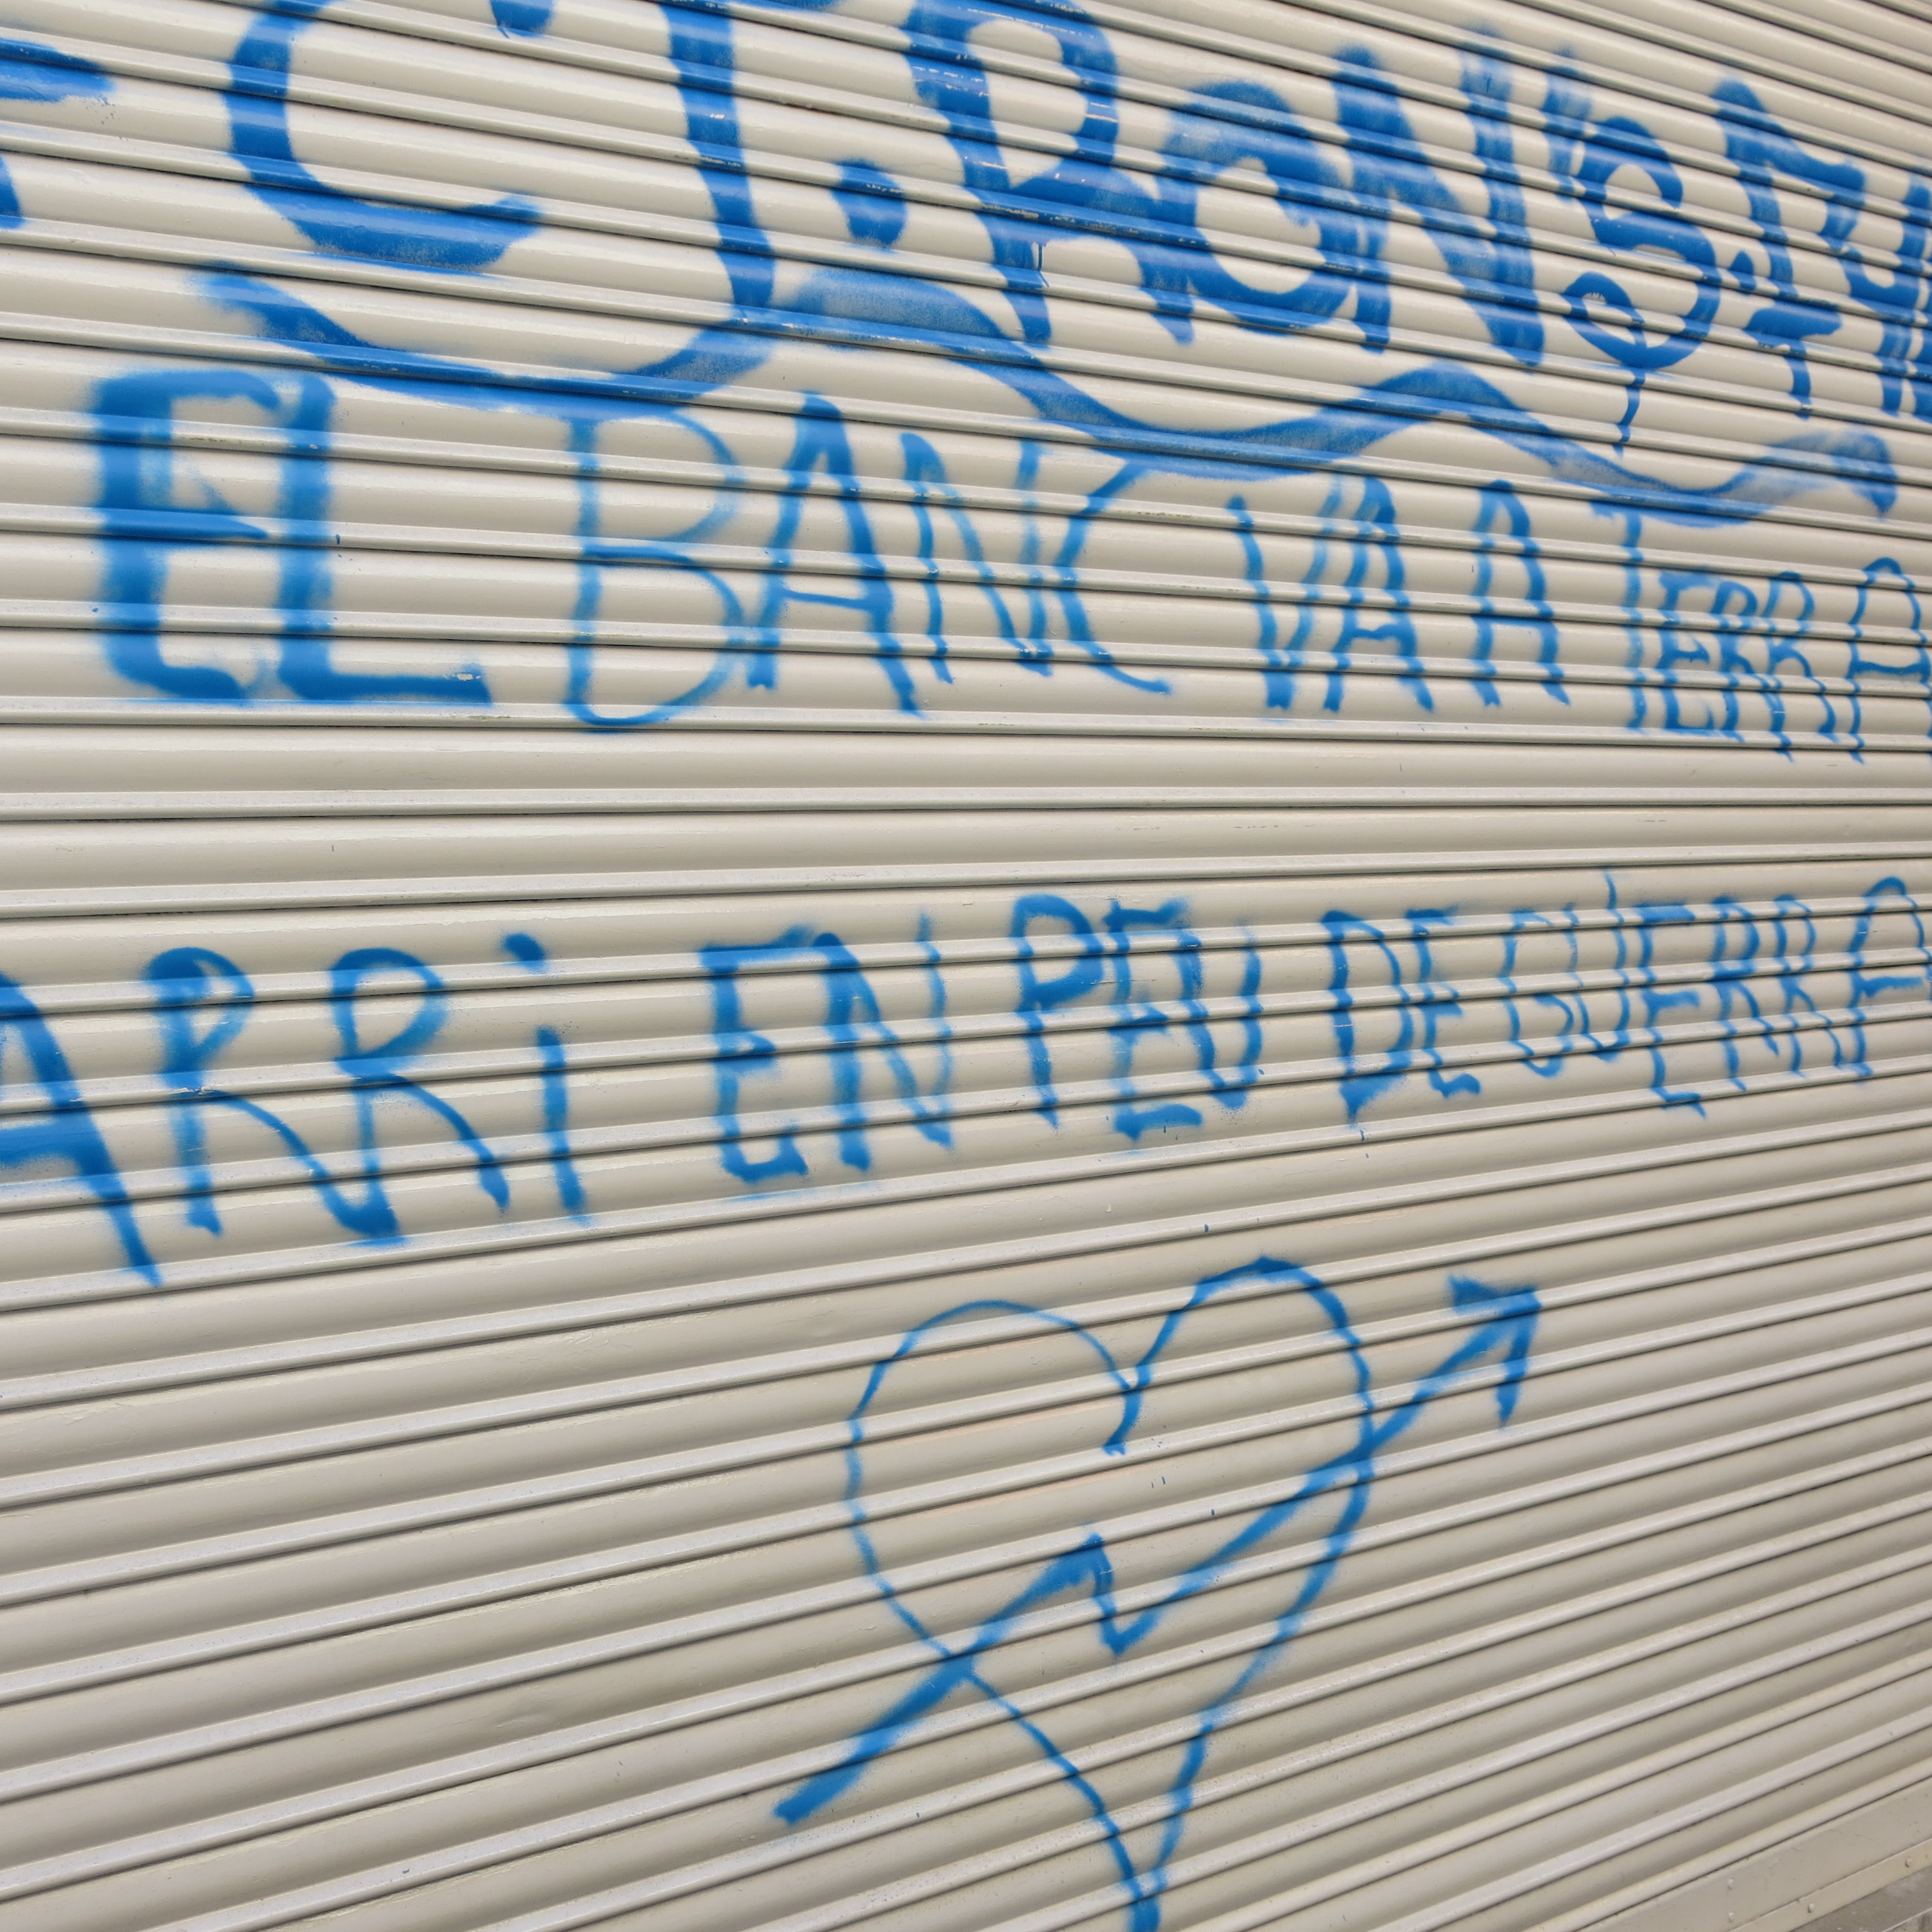 CJ.RON'S.
EL BANC VA A TERRA
BARRI EN PEU DE GUERRA